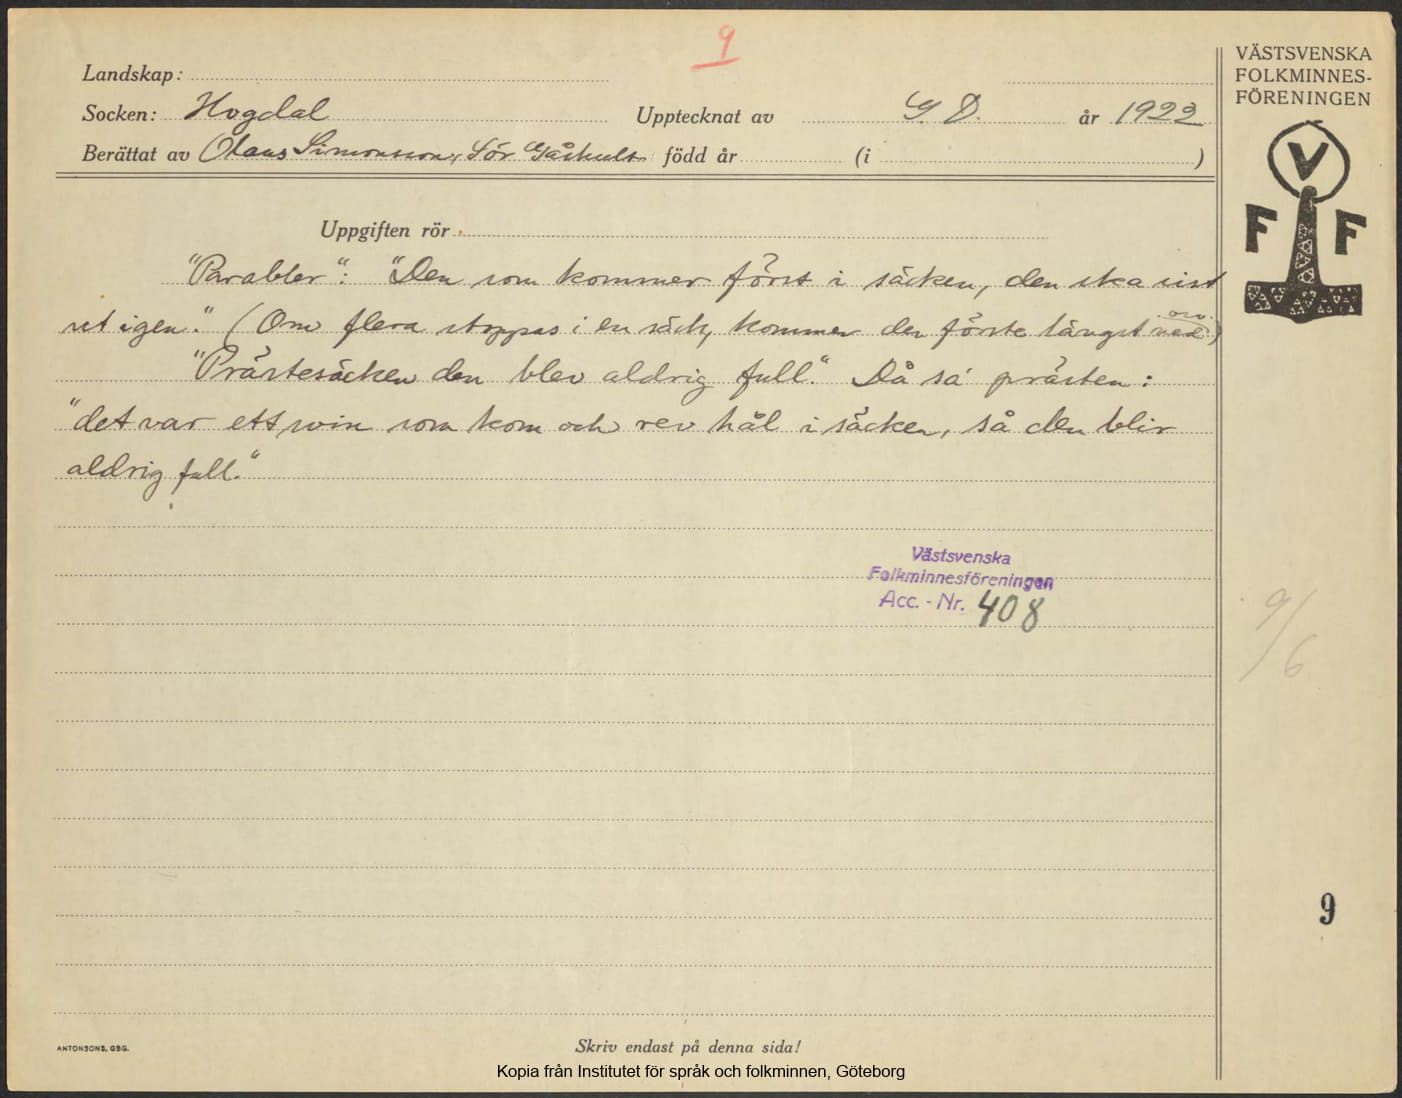 9
VÄSTSVENSKA
FOLKMINNES-
FÖRENINGEN
Landskap:
Socken: Hogdal Upptecknat av G. D. år 1922
Berättat av Olaus Simonsson, Sör Gåskult född år (i )
V
F F
Uppgiften rör
"Parabler": "Den som kommer först i säcken, den ska sist
ut igen." (Om flera stoppas i en säck, kommer den förste längst ned)
"Prästesäcken den blev aldrig full." Då sa prästen:
"det var ett svin som kom och rev hål i säcken, så den blir
aldrig full."
Västsvenska
Folkminnesföreningen
Acc. - Nr. 408
9/6
9
ANTONSONS, GBG.
Skriv endast på denna sida!
Kopia från Institutet för språk och folkminnen, Göteborg